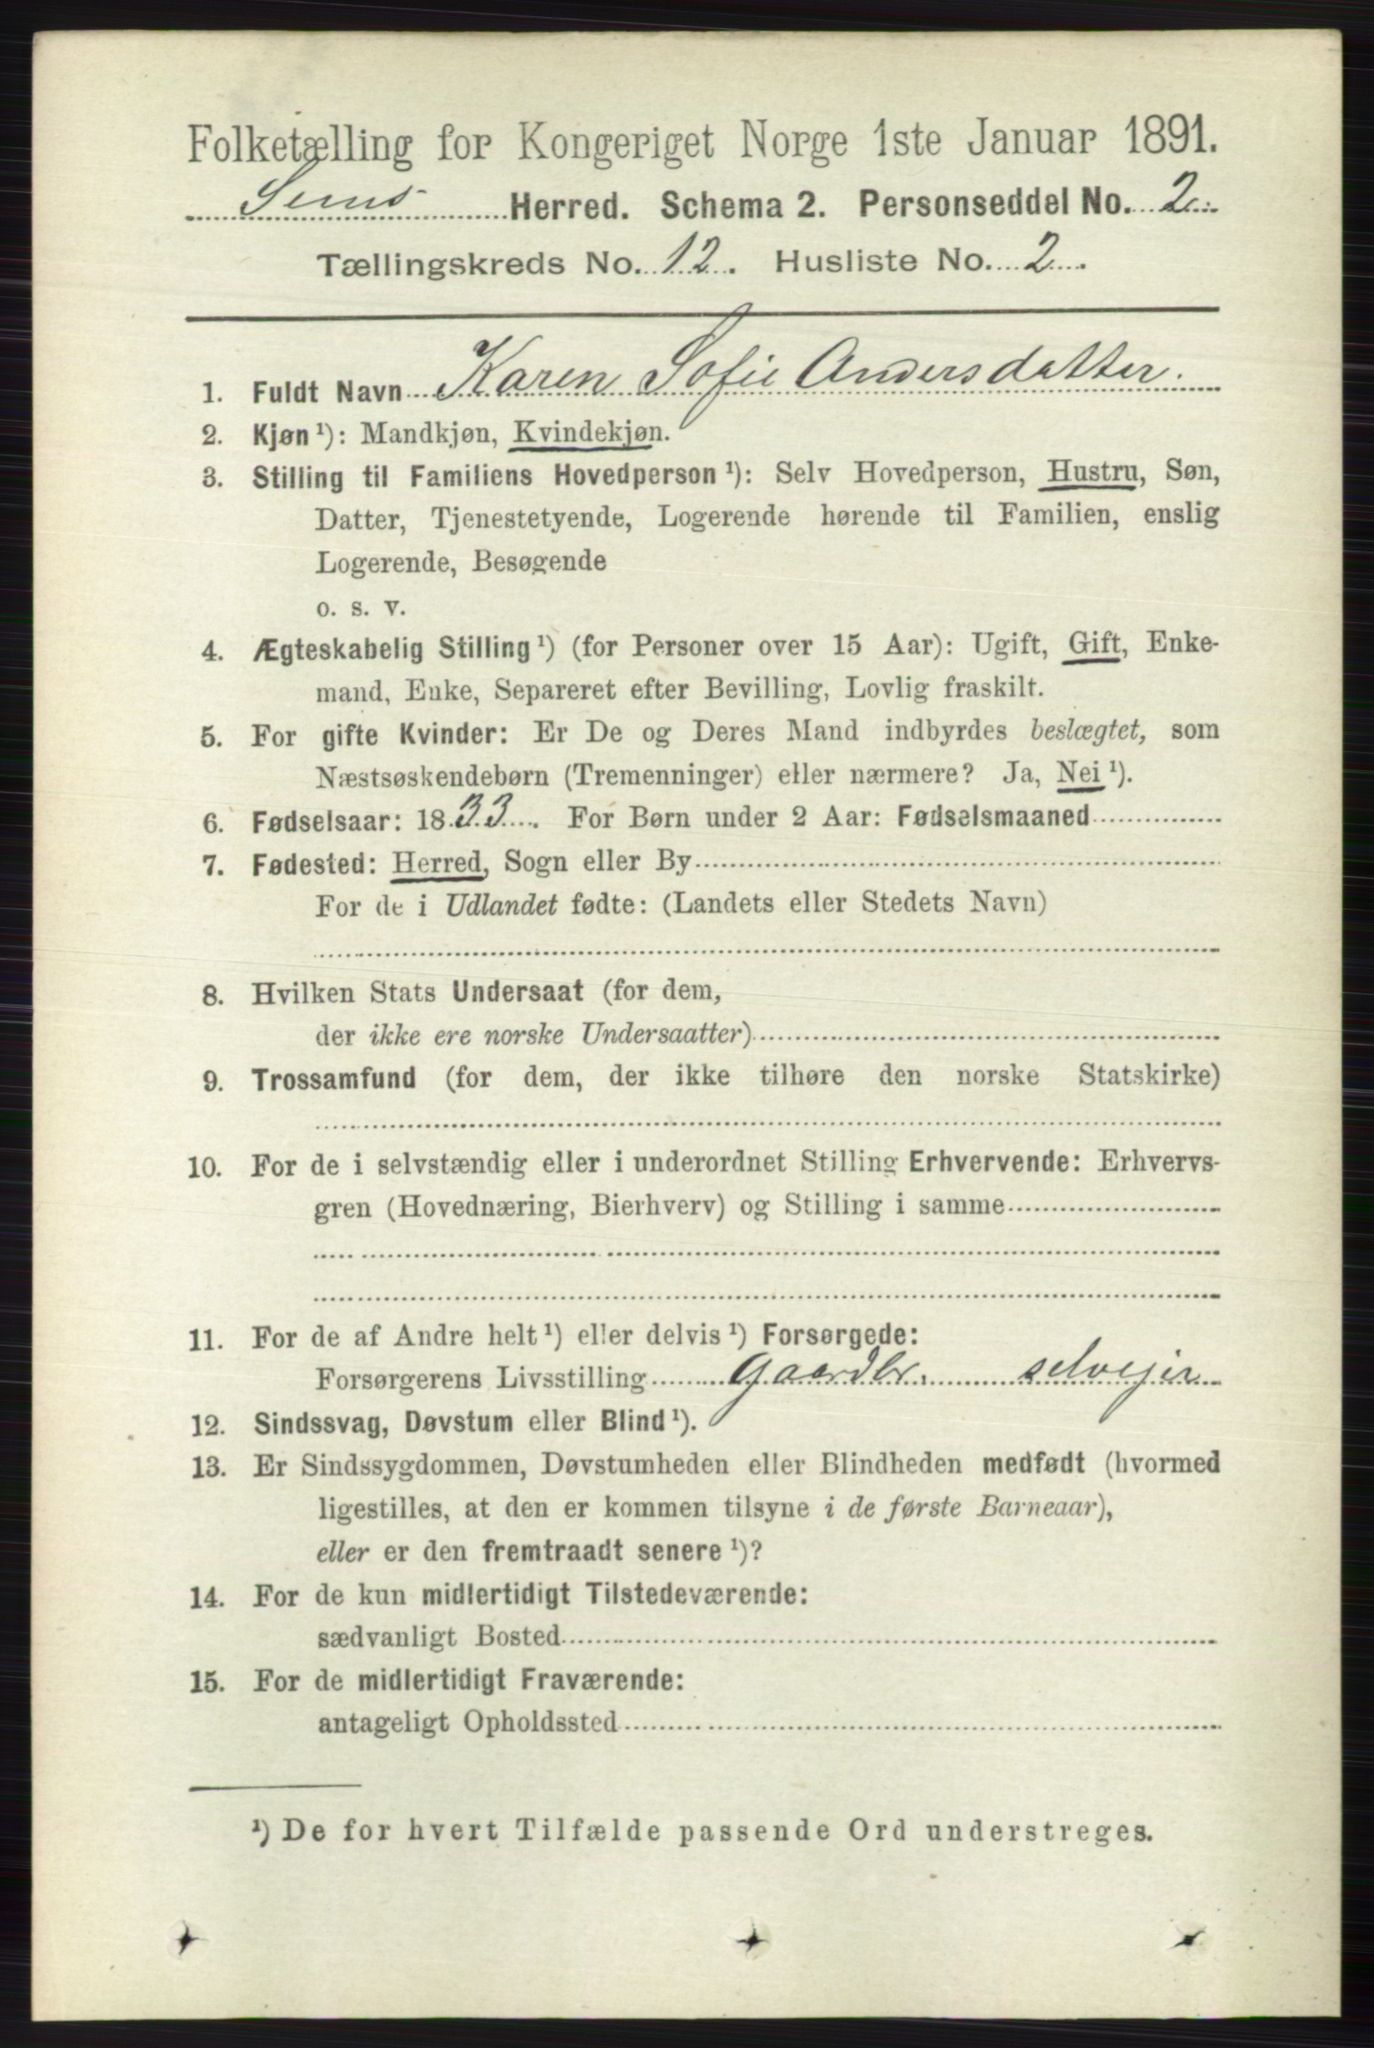 Folketælling for Kongeriget Norge 1ste Januar 1891.
Sems Herred. Schema 2. Personseddel No. 2
Tællingskreds No. 12. Husliste No. 2
1. Fuldt Navn Karen Sofie Andersdatter.
2. Kjøn ¹): Mandkjøn, Kvindekjøn.
3. Stilling til Familiens Hovedperson ¹): Selv Hovedperson, Hustru, Søn,
Datter, Tjenestetyende, Logerende hørende til Familien, enslig
Logerende, Besøgende
o. s. v.
4. Ægteskabelig Stilling ¹) (for Personer over 15 Aar): Ugift, Gift, Enke-
mand, Enke, Separeret efter Bevilling, Lovlig fraskilt.
5. For gifte Kvinder: Er De og Deres Mand indbyrdes beslægtet, som
Næstsøskendebørn (Tremenninger) eller nærmere? Ja, Nei ¹).
6. Fødselsaar: 1833. For Børn under 2 Aar: Fødselsmaaned
7. Fødested: Herred, Sogn eller By
For de i Udlandet fødte: (Landets eller Stedets Navn)
8. Hvilken Stats Undersaat (for dem,
der ikke ere norske Undersaatter)
9. Trossamfund (for dem, der ikke tilhøre den norske Statskirke)
10. For de i selvstændig eller i underordnet Stilling Erhvervende: Erhvervs-
gren (Hovednæring, Bierhverv) og Stilling i samme
11. For de af Andre helt ¹) eller delvis ¹) Forsørgede:
Forsørgerens Livsstilling Gaardbr. selvejer
12. Sindssvag, Døvstum eller Blind ¹).
13. Er Sindssygdommen, Døvstumheden eller Blindheden medfødt (hvormed
ligestilles, at den er kommen tilsyne i de første Barneaar),
eller er den fremtraadt senere ¹)?
14. For de kun midlertidigt Tilstedeværende:
sædvanligt Bosted
15. For de midlertidigt Fraværende:
antageligt Opholdssted
¹) De for hvert Tilfælde passende Ord understreges.